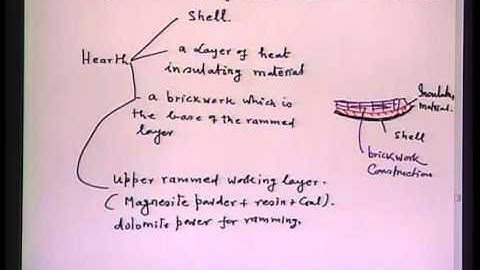 Shell.
Hearth
a Layer of heat
insulating material
a brickwork which is
the base of the rammed
layer
material.
Shell
brickwork
Construction
Upper rammed working layer.
(Magnesite powder + resin + Coal).
dolomite power for ramming.